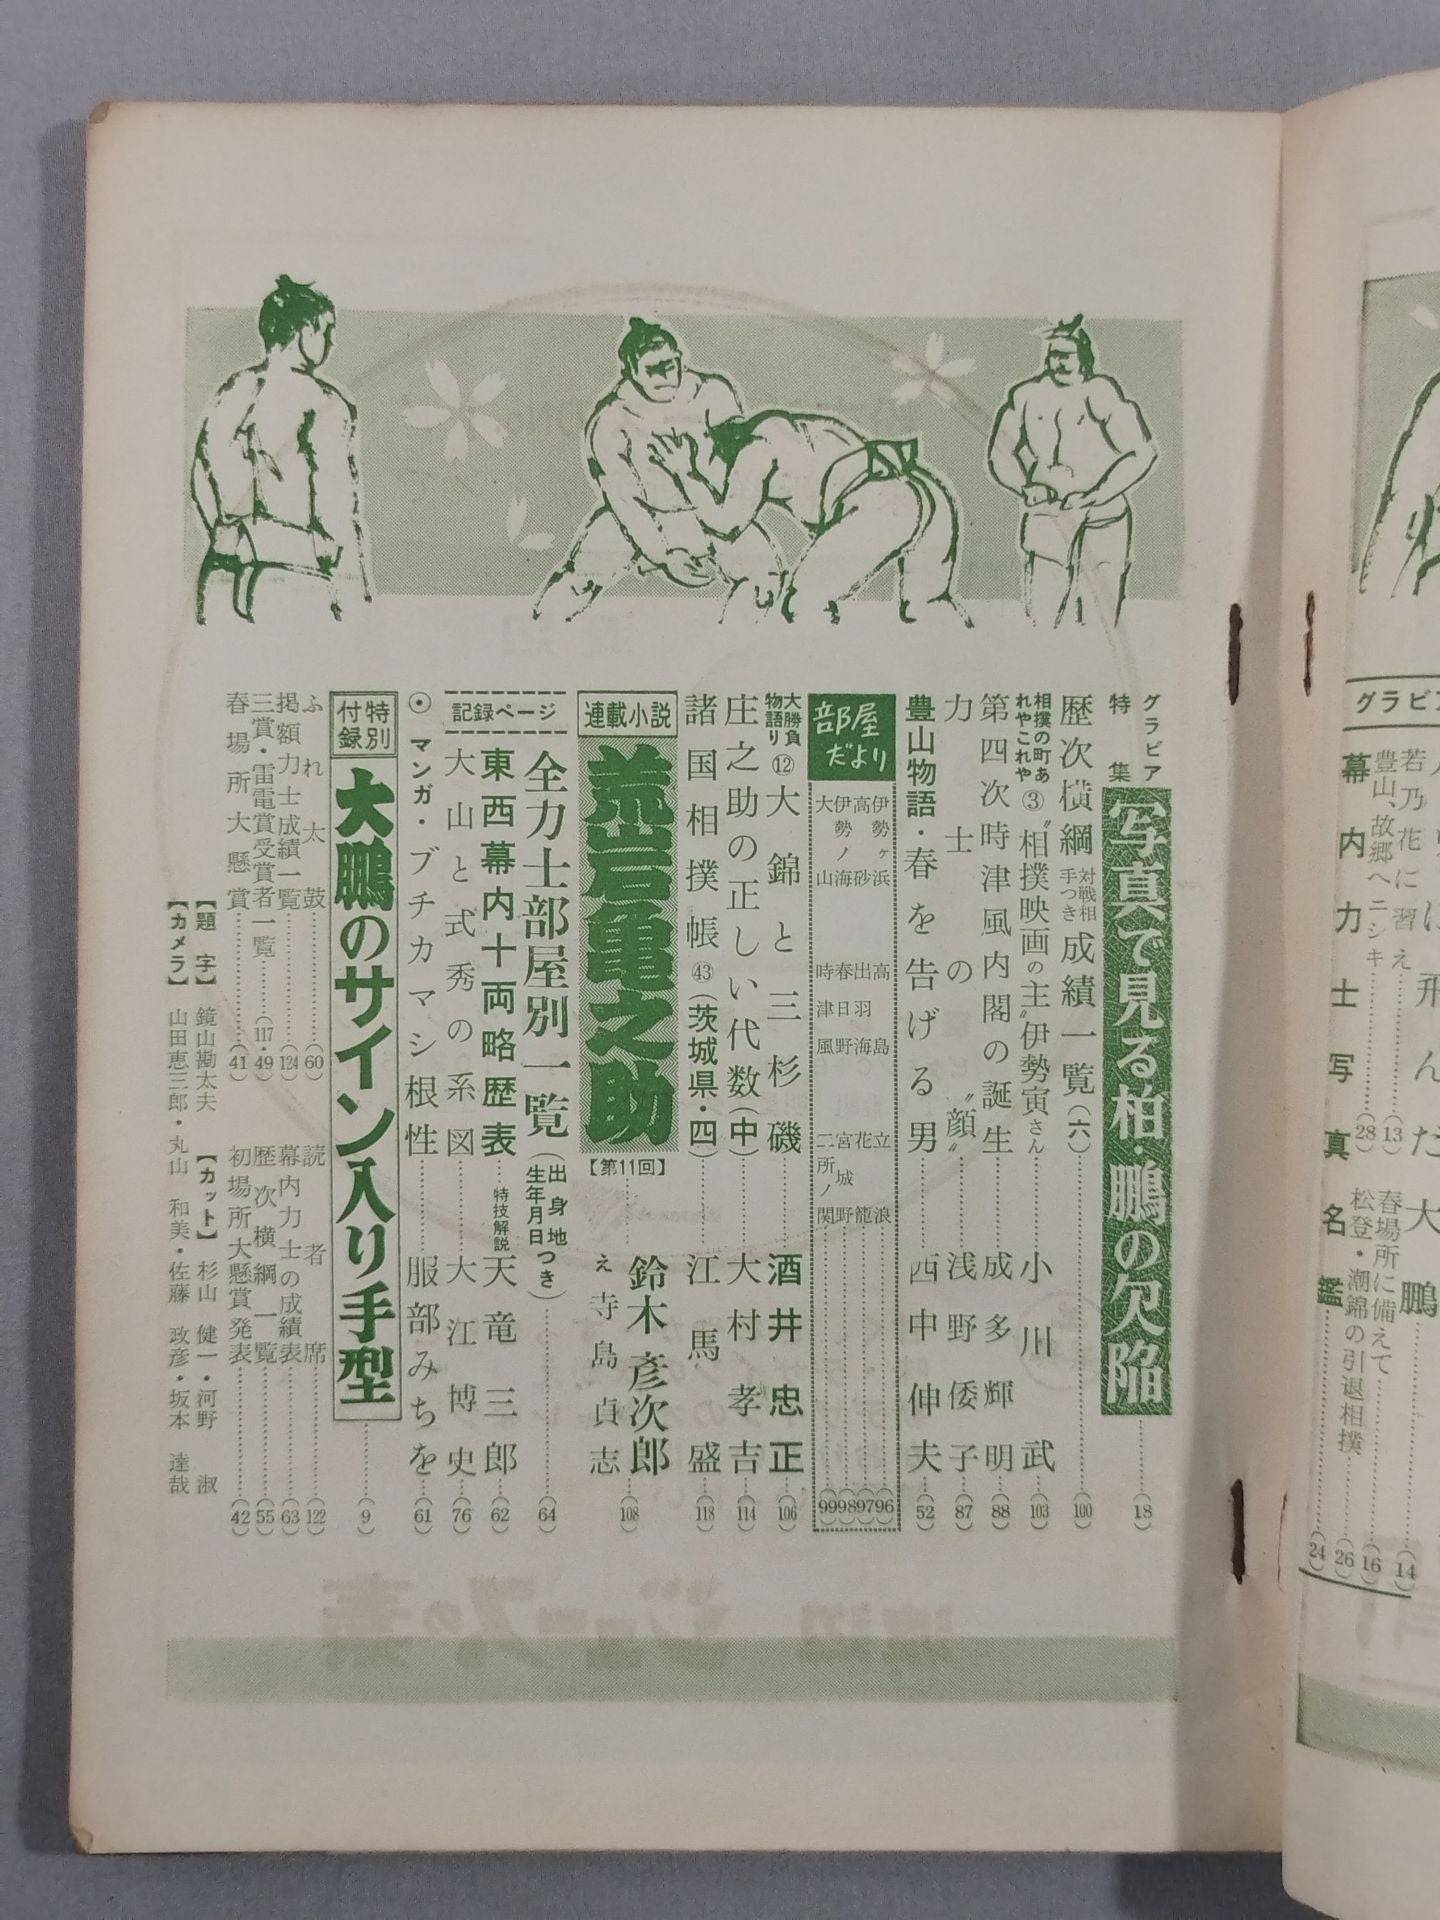 グラビア
幕内力士写真名鑑……(24)
若乃花に習え……(13)
豊山、故郷へニシキ……(28)
大鵬……(14)
春場所に備えて……(16)
松登・潮錦の引退相撲……(26)
グラビア特集
写真で見る柏・鵬の欠陥……(18)
歴次横綱対戦相手つき成績一覧(六)……(100)
相撲の町あれやこれや③ 〝相撲映画の主〟伊勢寅さん 小川武……(103)
第四次時津風内閣の誕生……成多輝明……(88)
力士の〝顔〟……浅野倭子……(87)
豊山物語・春を告げる男……西中伸夫……(52)
部屋だより
伊勢ヶ浜 高島 立浪……(96)
高砂 出羽海 花籠……(97)
伊勢ノ海 春日野 宮城野……(98)
大山 時津風 二所ノ関……(99)
大勝負物語り⑫大錦と三杉磯……酒井忠正……(106)
庄之助の正しい代数(中)……大村孝吉……(114)
諸国相撲帳㊸(茨城県・四)……江馬盛……(118)
連載小説
荒岩亀之助【第11回】……鈴木彦次郎 え 寺島貞志……(108)
記録ページ
全力士部屋別一覧(出身地生年月日つき)……(64)
東西幕内十両略歴表……特技解説 天竜三郎……(62)
大山と式秀の系図……大江博史……(76)
⦿マンガ・ブチカマシ根性……服部みちを……(61)
特別付録
大鵬のサイン入り手型……(9)
ふれ太鼓……(60)
読者席……(122)
掲額力士成績一覧……(124)
幕内力士の成績表……(63)
三賞・雷電賞受賞者一覧……(117・49)
歴次横綱一覧……(55)
春場所大懸賞……(41)
初場所大懸賞発表……(42)
【題字】鏡山勘太夫 【カット】杉山健一・河野淑
【カメラ】山田恵三郎・丸山和美・佐藤政彦・坂本達哉